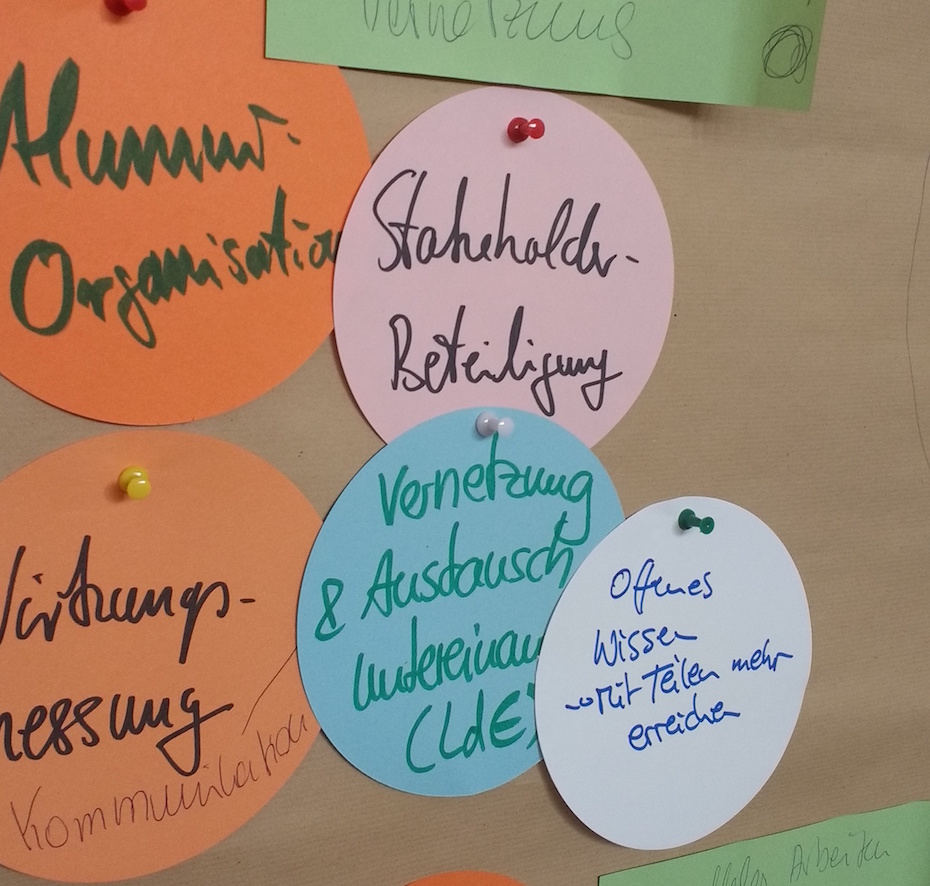 Vernetzung
Alumni-
Organisation
Stakeholder-
Beteiligung
Wirkungs-
messung
Kommunikation
Vernetzung
& Austausch
untereinan
(LdE)
Offenes
Wissen
→ Mit Teilen mehr
erreichen
Arbeiten